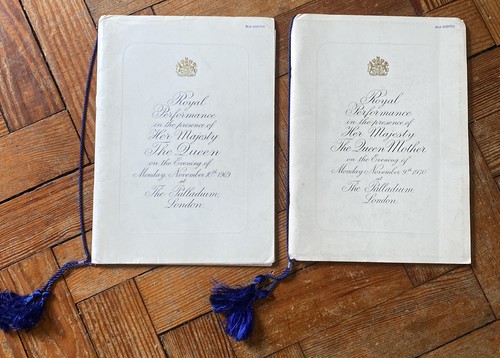 Royal
Performance
in the presence of
Her Majesty
The Queen
on the Evening of
Monday, November 10th 1969
at
The Palladium
London.
Royal
Performance
in the presence of
Her Majesty
The Queen Mother
on the Evening of
Monday, November 9th 1970
at
The Palladium
London.